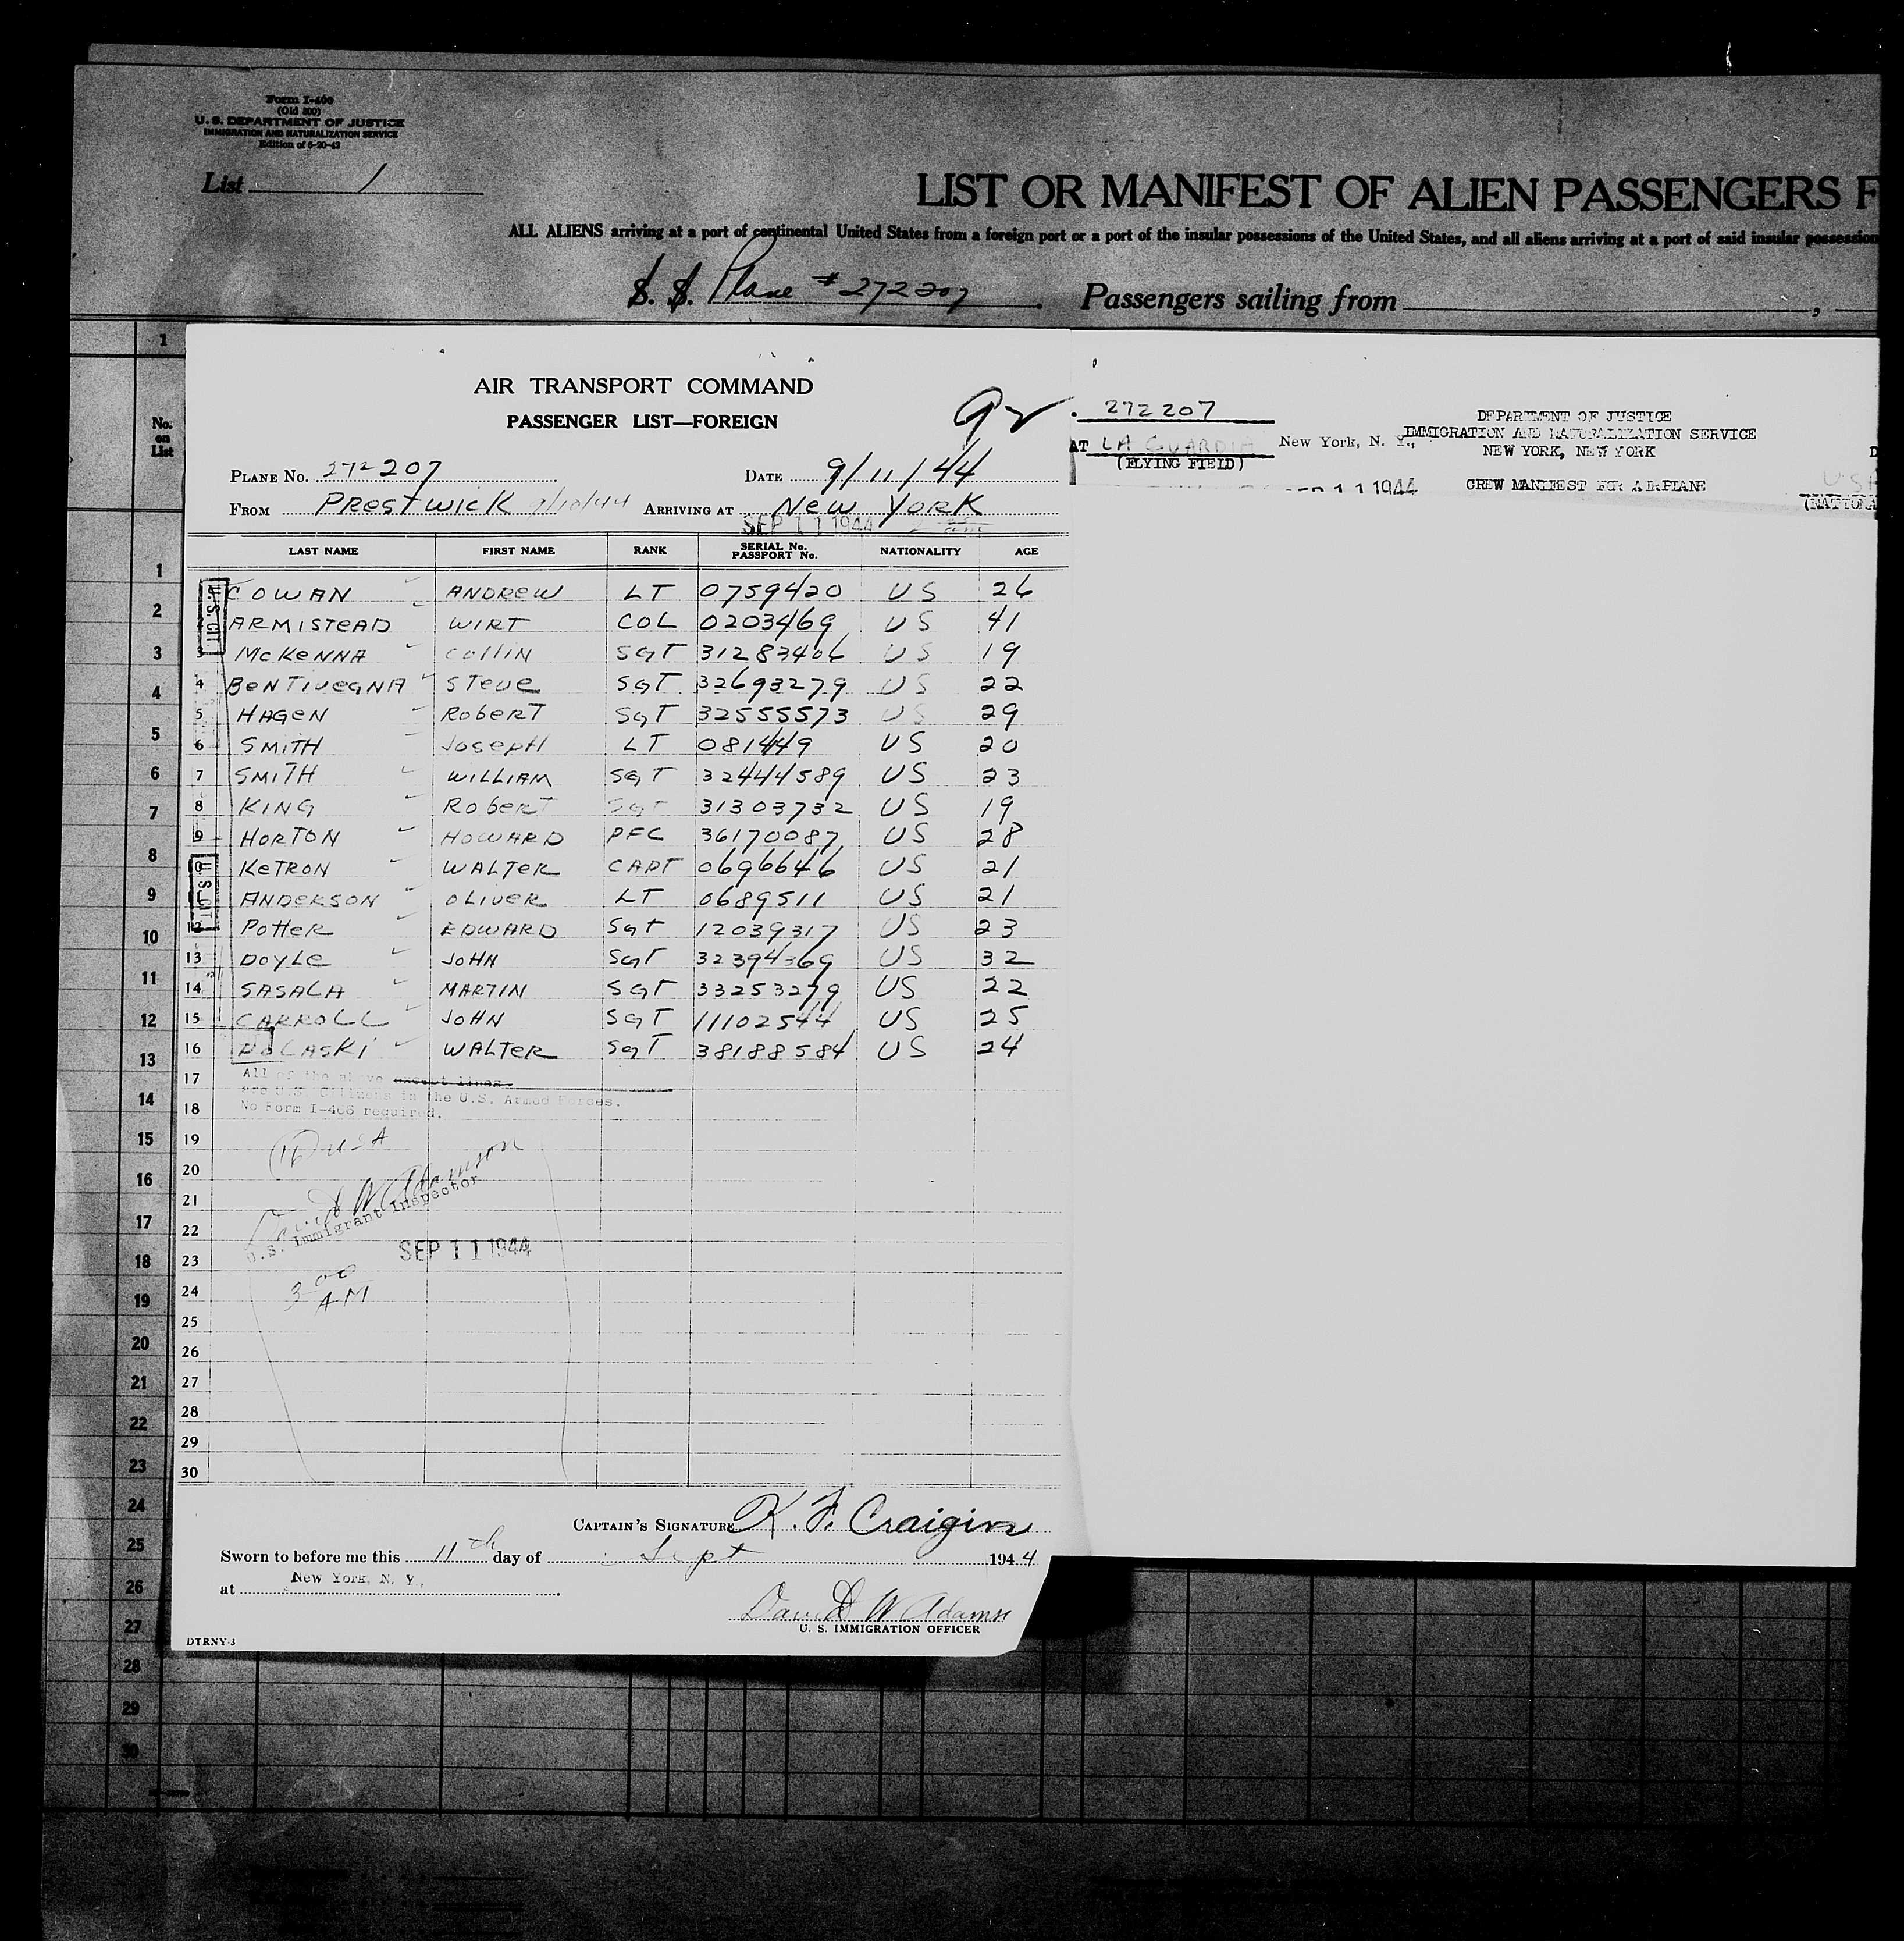 Form I-400
(Old 500)
U. S. DEPARTMENT OF JUSTICE
IMMIGRATION AND NATURALIZATION SERVICE
Edition of 6-20-43
List 1
LIST OR MANIFEST OF ALIEN PASSENGERS F
ALL ALIENS arriving at a port of continental United States from a foreign port or a port of the insular possessions of the United States, and all aliens arriving at a port of said insular possession
S. S. Plane # 272207. Passengers sailing from ,
1
No. on List
AIR TRANSPORT COMMAND
PASSENGER LIST—FOREIGN
PLANE No. 272207 DATE 9/11/44
FROM PRESTWICK 9/10/44 ARRIVING AT NEW YORK
SEP 11 1944
LAST NAME FIRST NAME RANK SERIAL No. PASSPORT No. NATIONALITY AGE
COWAN ANDREW LT 0759420 US 26
ARMISTEAD WIRT COL 0203469 US 41
3 McKENNA COLLIN SGT 31283406 US 19
4 BENTIVEGNA STEVE SGT 32693279 US 22
5 HAGEN ROBERT SGT 32555573 US 29
6 SMITH JOSEPH LT 081449 US 20
7 SMITH WILLIAM SGT 32444589 US 23
8 KING ROBERT SGT 31303732 US 19
9 HORTON HOWARD PFC 36170087 US 28
10 KETRON WALTER CAPT 0696646 US 21
ANDERSON OLIVER LT 0689511 US 21
12 POTTER EDWARD SGT 12039317 US 23
13 DOYLE JOHN SGT 32394369 US 32
14 SASALA MARTIN SGT 33253279 US 22
15 CARROLL JOHN SGT 11102544 US 25
16 POLASKI WALTER SGT 38188584 US 24
17 All of the above except lines
are U.S. Citizens in the U.S. Armed Forces.
18 No Form I-466 required.
19 (16) USA
20
21 David W Adamson
22 U.S. Immigrant Inspector
23 SEP 11 1944
24 3 00 AM
25
26
27
28
29
30
CAPTAIN'S SIGNATURE K. F. Craigin
Sworn to before me this 11th day of Sept 1944
at New York, N. Y.,
David W Adamson
U. S. IMMIGRATION OFFICER
DTRNY-3
U.S.CIT.
U.S.CIT.
272207
AT LA GUARDIA New York, N. Y.,
(FLYING FIELD)
11 1944
DEPARTMENT OF JUSTICE
IMMIGRATION AND NATURALIZATION SERVICE
NEW YORK, NEW YORK
CREW MANIFEST FOR AIRPLANE
(NATIONA
1
2
3
4
5
6
7
8
9
10
11
12
13
14
15
16
17
18
19
20
21
22
23
24
25
26
27
28
29
30